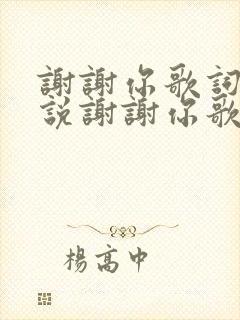 謝謝你歌詞
說謝謝你歌
楊高中